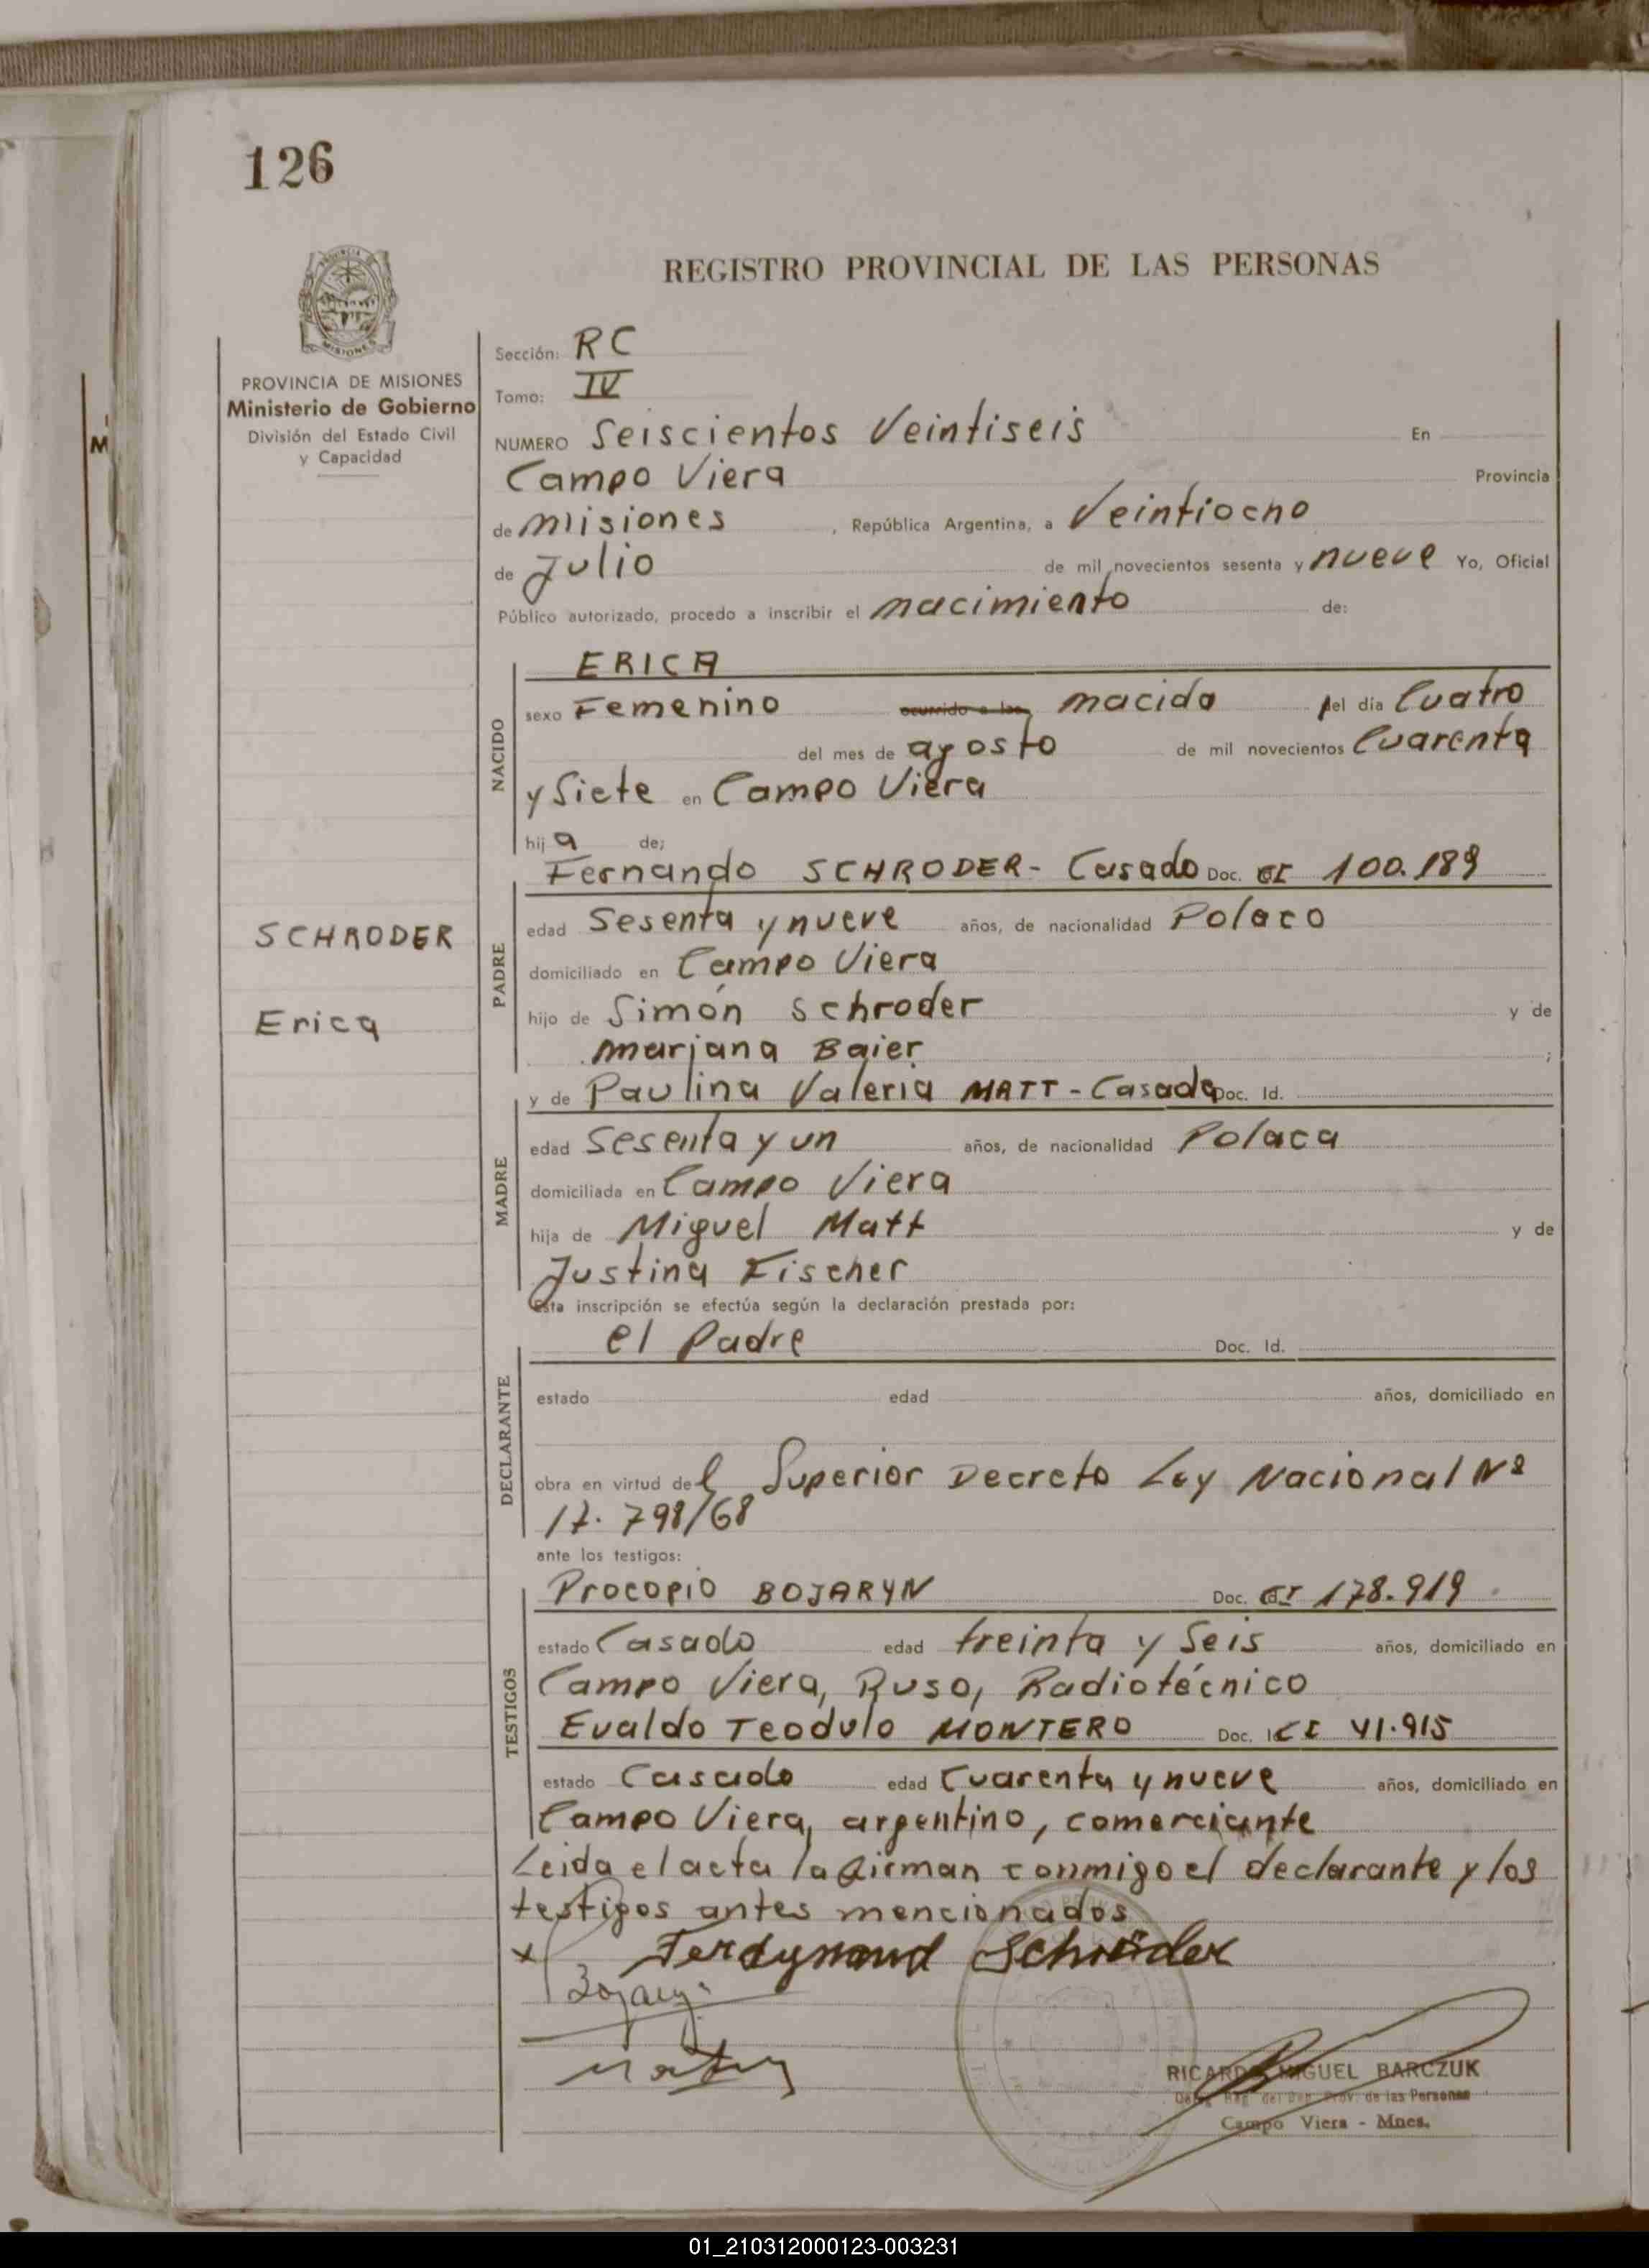 126
REGISTRO PROVINCIAL DE LAS PERSONAS
MISIONES
PROVINCIA DE MISIONES
Ministerio de Gobierno
División del Estado Civil
y Capacidad
Sección: RC
Tomo: IV
NUMERO Seiscientos Veintiseis En
Campo Viera Provincia
de misiones, República Argentina, a Veintiocho
de Julio de mil novecientos sesenta y nueve Yo, Oficial
Público autorizado, procedo a inscribir el nacimiento de:
NACIDO
ERICA
sexo Femenino ocurrido a las nacida del día Cuatro
del mes de agosto de mil novecientos Cuarenta
y Siete en Campo Viera
hija de;
SCHRODER
Erica
PADRE
Fernando SCHRODER - Casado Doc. CI 100.189
edad Sesenta y nueve años, de nacionalidad Polaco
domiciliado en Campo Viera
hijo de Simón Schroder y de
Mariana Baier;
MADRE
y de Paulina Valeria MATT - Casada Doc. Id.
edad Sesenta y un años, de nacionalidad Polaca
domiciliada en Campo Viera
hija de Miguel Matt y de
Justina Fischer
Esta inscripción se efectúa según la declaración prestada por:
DECLARANTE
el Padre Doc. Id.
estado edad años, domiciliado en
obra en virtud del Superior Decreto Ley Nacional Nº
17.798/68
ante los testigos:
TESTIGOS
Procopio BOJARYN Doc. CI 178.919
estado Casado edad treinta y Seis años, domiciliado en
Campo Viera, Ruso, Radiotécnico
Evaldo Teodulo MONTERO Doc. I CI 41.915
estado Casado edad Cuarenta y nueve años, domiciliado en
Campo Viera, argentino, comerciante
Leida el acta la firman conmigo el declarante y los
testigos antes mencionados
x Ferdynand Schröder
RICARDO MIGUEL BARCZUK
Prov. de las Personas
Campo Viera - Mnes.
01_210312000123-003231